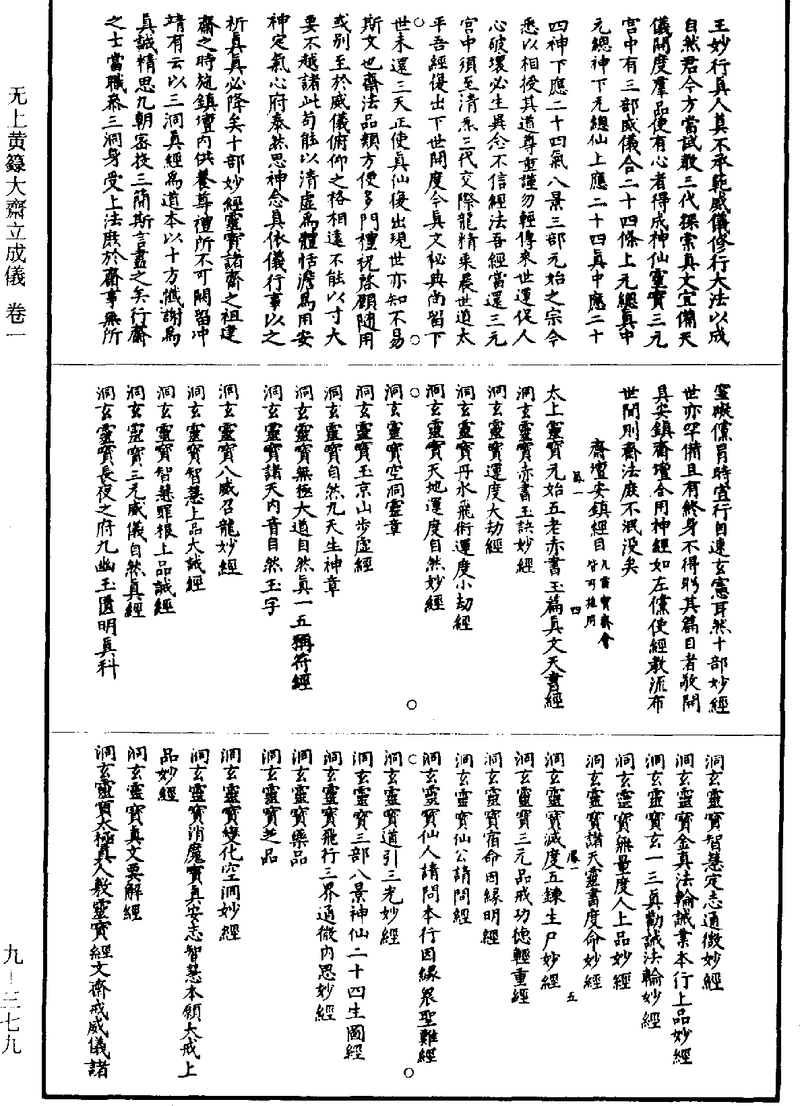 无上黄籙大齋立成儀 卷一
九—三七九
王妙行真人莫不承範威儀修行大法以成
自然君今方當試敷三代探索真文宣備天
儀開度羣品使有心者得成神仙靈寶三元
宮中有三部威儀合二十四條上元總真中
元總神下元總仙上應二十四真中應二十
四神下應二十四氣八景三部元始之宗今
悉以相授其道尊重謹勿輕傳來世運促人
心破壞必生異念不信經法吾經當還三元
宮中須至清炁三代交際龍精乘晨世道太
平吾經復出下世開度今真文秘典尚留下
世未還三天正使真仙復出現世亦知不易
斯文也齋法品類方便多門禮祝啓願隨用
或别至於威儀俯仰之格相遠不能以寸大
要不越諸此苟能以清虛爲體恬澹爲用安
神定氣心府泰然思神念真依儀行事以之
祈真真必降矣十部妙經靈寶諸齋之祖建
齋之時旋鎮壇内供養尊禮所不可闕留冲
靖有云以三洞真經爲道本以十方懺謝爲
真誠精思九朝密投三簡斯言盡之矣行齋
之士當職叅三洞身受上法庶於齋事無所
窒礙儻冒時宜行自速玄憲耳然十部妙經
世亦罕備且有終身不得聆其篇目者敬開
具安鎮齋壇合用神經如左儻使經教流布
世間則齋法庶不泯没矣
齋壇安鎮經目 凡靈寶齋會皆可権用
太上靈寶元始五老赤書玉篇真文天書經
洞玄靈寶赤書玉訣妙經
洞玄靈寶運度大劫經
洞玄靈寶丹水飛術運度小劫經
洞玄靈寶天地運度自然妙經
洞玄靈寶空洞靈章
洞玄靈寶玉京山步虛經
洞玄靈寶自然九天生神章
洞玄靈寶無極大道自然真一五稱符經
洞玄靈寶諸天内音自然玉字
洞玄靈寶八威召龍妙經
洞玄靈寶智慧上品大誡經
洞玄靈寶智慧罪根上品誡經
洞玄靈寶三元威儀自然真經
洞玄靈寶長夜之府九幽玉匱明真科
洞玄靈寶智慧定志通微妙經
洞玄靈寶金真法輪誡業本行上品妙經
洞玄靈寶玄一三真勸誡法輪妙經
洞玄靈寶無量度人上品妙經
洞玄靈寶諸天靈書度命妙經
洞玄靈寶滅度五鍊生尸妙經
洞玄靈寶三元品戒功德輕重經
洞玄靈寶宿命因緣明經
洞玄靈寶仙公請問經
洞玄靈寶仙人請問本行因緣衆聖難經
洞玄靈寶道引三光妙經
洞玄靈寶三部八景神仙二十四生圖經
洞玄靈寶飛行三界通微内思妙經
洞玄靈寶藥品
洞玄靈寶芝品
洞玄靈寶變化空洞妙經
洞玄靈寶消魔寶真安志智慧本願大戒上
品妙經
洞玄靈寶真文要解經
洞玄靈寶太極真人敷靈寶經文齋戒威儀諸